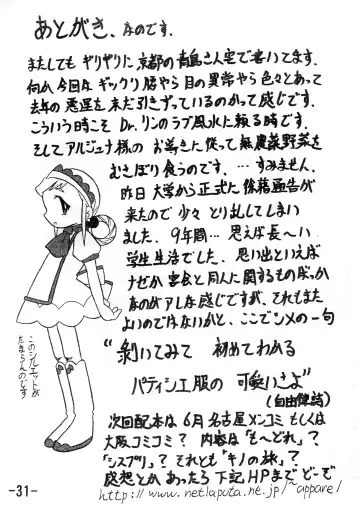 あとがき、なのです。
またしても ギリギリに京都の青島さん宅で書いてます。
何か今回は ギックリ腰やら目の異常やら色々とあって
去年の悪運を未だ引きずっているのかって感じです。
こういう時こそ Dr.リンのラブ風水に頼る時です。
そしてアルジュナ様のお導きに従って無農薬野菜を
むさぼり食うのです。…すみません。
昨日 大学から正式に除籍通告が
来たので少々とり乱してしまい
ました。9年間…思えば長〜い
学生生活でした。思い出といえば
ナゼか宴会と同人に関するものばっか
なのがアレな感じですが、それもまた
よいのではないかと、ここでシメの一句
“剥いてみて 初めてわかる
パティシエ服の 可愛いさよ”
(自由律詩)
このシルエットが
たまらんのです
次回配本は 6月名古屋メンコミ もしくは
大阪コミコミ? 内容は「も〜どれ」?
「シスプリ」? それとも「キノの旅」?
感想とかあったら下記HPまでど〜ぞ
http://www.netlaputa.ne.jp/~appare/
-31-